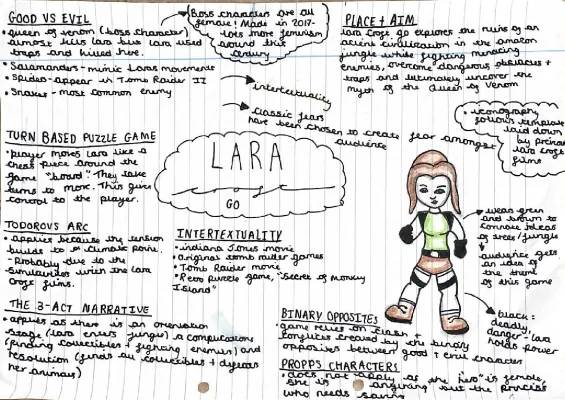 GOOD VS EVIL
• queen of venom (boss character)
almost kills lara but lara used
traps and killed here.
• Salamanders - mimic Laras movements
• Spides - appear in Tomb Raider II
• Snakes - most common enemy
Boss characters are all
female! Made in 2017-
lots more feminism
around this
century
intertextuality
classic fears
have been chosen to create fear amongst
audience
PLACE + AIM
Lara Croft go explores the ruins of an
ancient civilization in the amazon
jungle while fighting menacing
enemies, overcome dangerous obstacles +
traps and ultimately uncover the
myth of the Queen of Venom
• iconography
follows template
laid down
by
lara croft
films
TURN BASED PUZZLE GAME
• player moves lara like a
chess piece around the
game "board". They take
turns to move. This gives
control to the player.
LARA
croft
GO
TODOROVS ARC
• applies because the tension
builds to a climatic point.
- Probably due to the
similarities with the lara
croft films.
INTERTEXTUALITY
• indiana Jones movie
• original tomb raider games
• Tomb Raider movie
• Retro puzzle game, "Secret of Monkey
Island"
• wears green
and brown to
connote ideas
of trees/jungle
audience gets
an idea of
the theme
of this game
• black:
deadly,
danger - lara
holds power
THE 3-ACT NARRATIVE
• applies as there is an orientation
stage (lara enters jungle) a complications
(finding collectibles + fighting enemies) and
resolution (finds all collectibles + defeats
her animals)
BINARY OPPOSITES
• game relies on clash +
conflicts created by the binary
opposites between good + evil character
PROPPS CHARACTERS
• does not apply as the "hero" is female,
she is anything but the princess
who needs saving